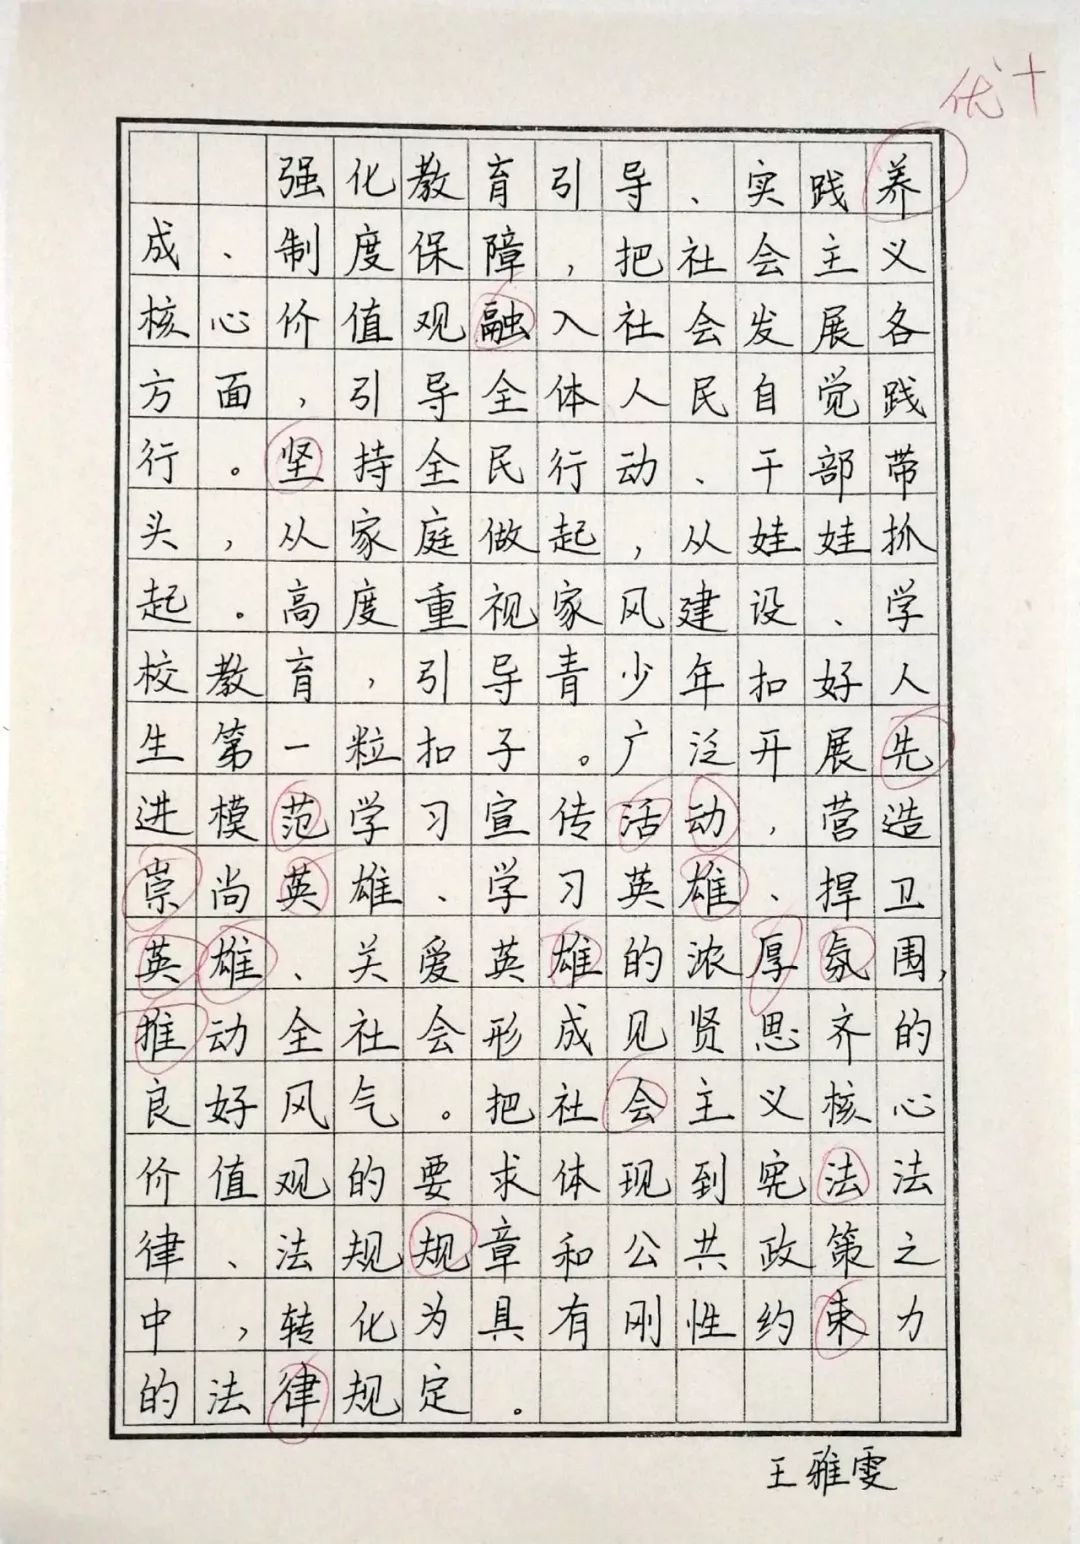 优+
强化教育引导、实践养
成、制度保障,把社会主义
核心价值观融入社会发展各
方面,引导全体人民自觉践
行。坚持全民行动、干部带
头,从家庭做起,从娃娃抓
起。高度重视家风建设、学
校教育,引导青少年扣好人
生第一粒扣子。广泛开展先
进模范学习宣传活动,营造
崇尚英雄、学习英雄、捍卫
英雄、关爱英雄的浓厚氛围,
推动全社会形成见贤思齐的
良好风气。把社会主义核心
价值观的要求体现到宪法法
律、法规规章和公共政策之
中,转化为具有刚性约束力
的法律规定。
王雅雯